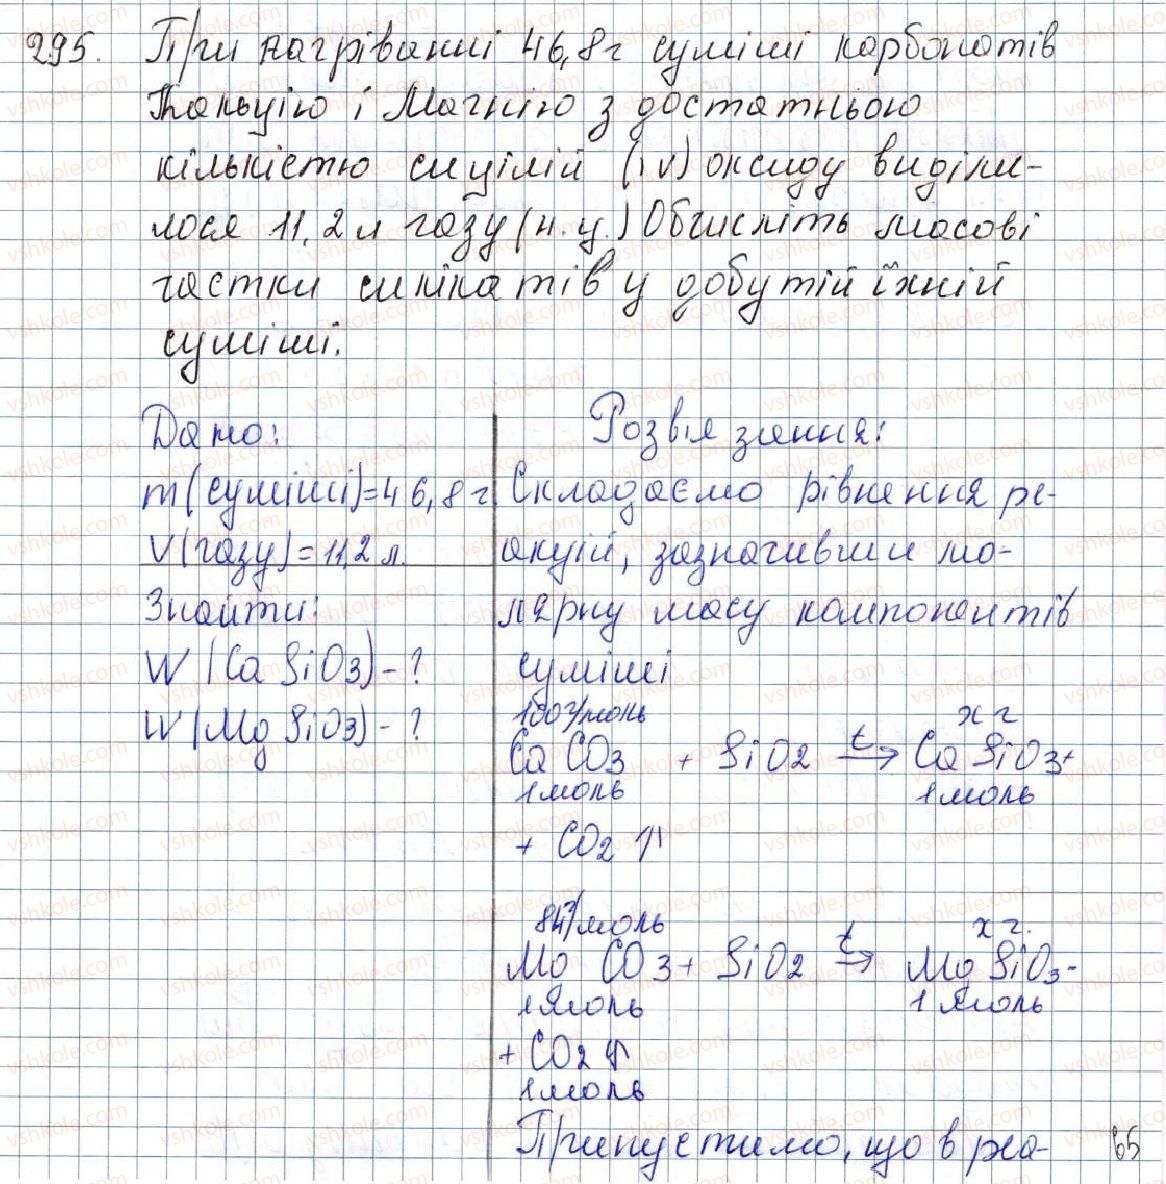 295. При нагріванні 46,8 г суміші карбонатів
Кальцію і Магнію з достатньою
кількістю силіцій (IV) оксиду виділи-
лося 11,2 л газу (н.у.) Обчисліть масові
частки силікатів у добутій їхній
суміші.
Дано:
m(суміші)=46,8 г
V(газу)=11,2 л.
Знайти:
W(CaSiO3)-?
W(MgSiO3)-?
Розв'язання:
Складаємо рівняння ре-
акцій, зазначивши мо-
лярну масу компонентів
суміші
100г/моль x г
CaCO3 + SiO2 t→ CaSiO3+
1моль 1моль
+ CO2↑
84г/моль x г.
MgCO3+ SiO2 t→ MgSiO3-
1моль 1моль
+ CO2↑
1моль
Припустимо, що в реа-
65
vshkole.com